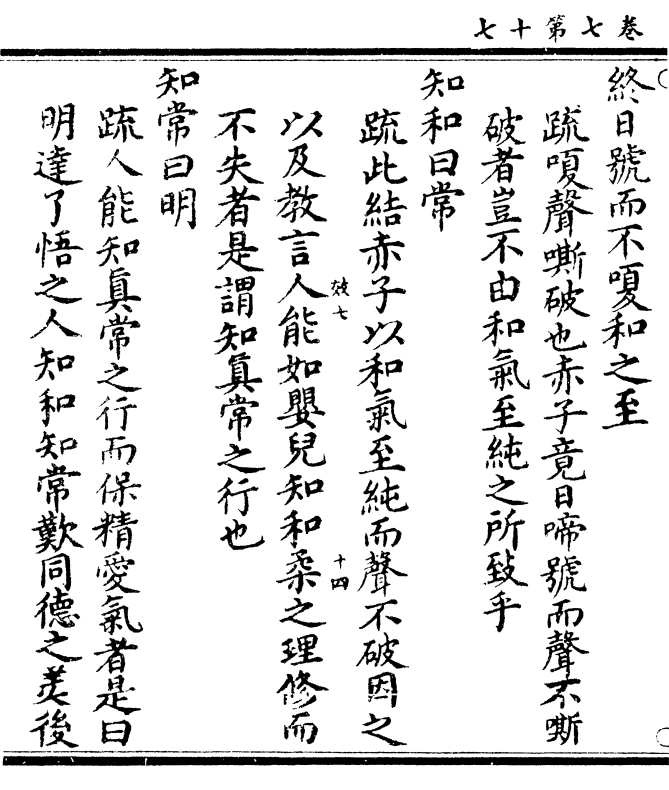 卷七第十七
終日號而不嗄和之至
疏嗄聲嘶破也赤子竟日啼號而聲不嘶
破者豈不由和氣至純之所致乎
知和曰常
疏此結赤子以和氣至純而聲不破因之
以及教言人能如嬰兒知和柔之理修而
效七
十四
不失者是謂知眞常之行也
知常曰明
疏人能知眞常之行而保精愛氣者是曰
明達了悟之人知和知常歎同德之美後